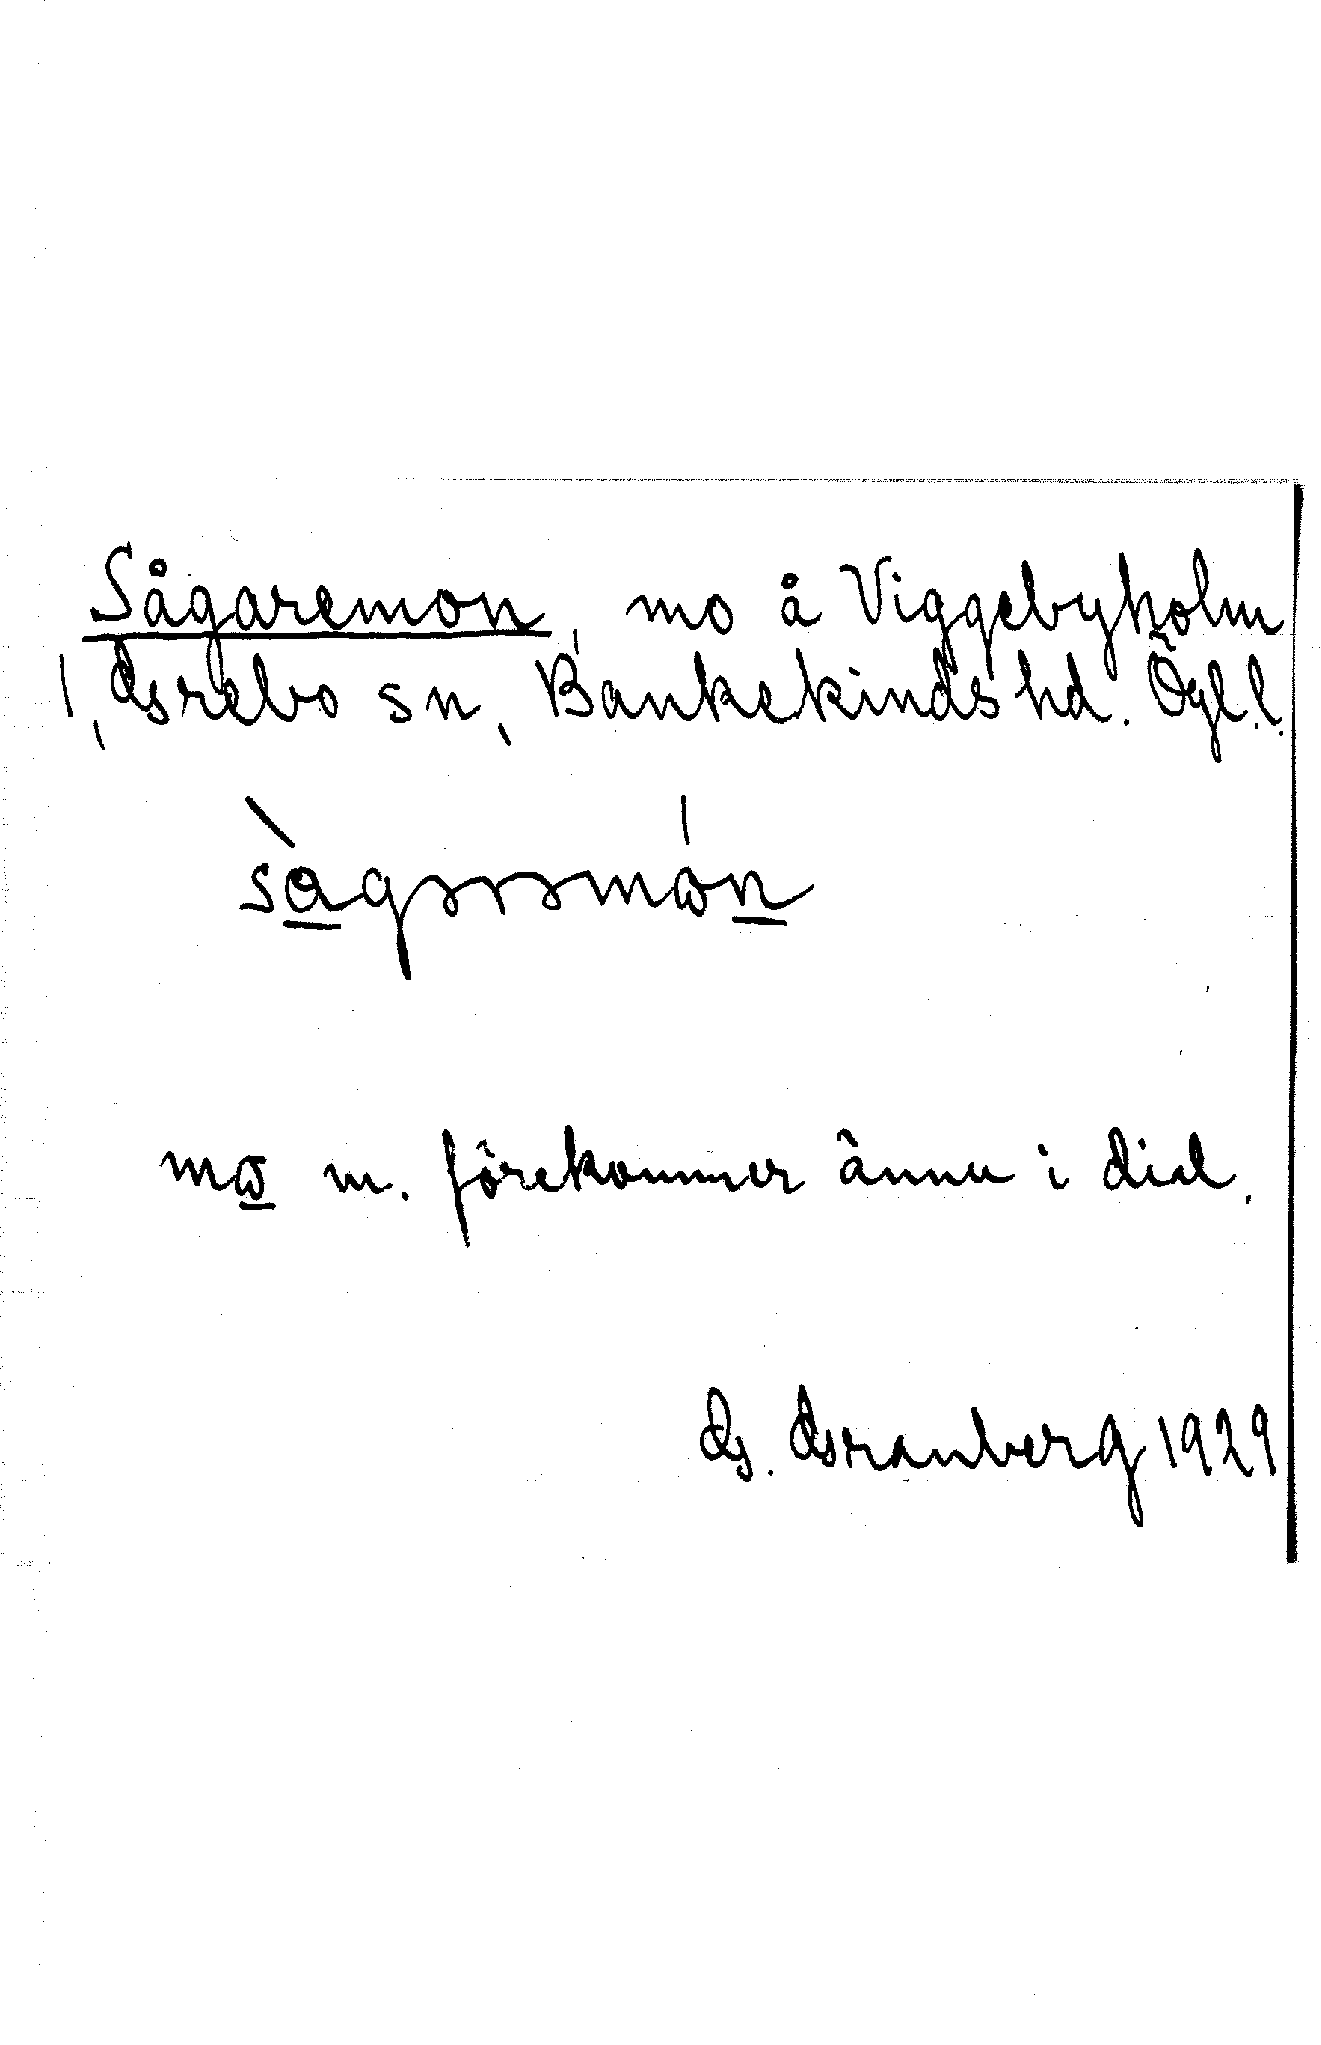 Sågaremon, mo å Viggebyholm
1, Grebo sn, Bankekinds hd. Ögl. l.
m. förekommer ännu i dial.
G. Granberg 1929